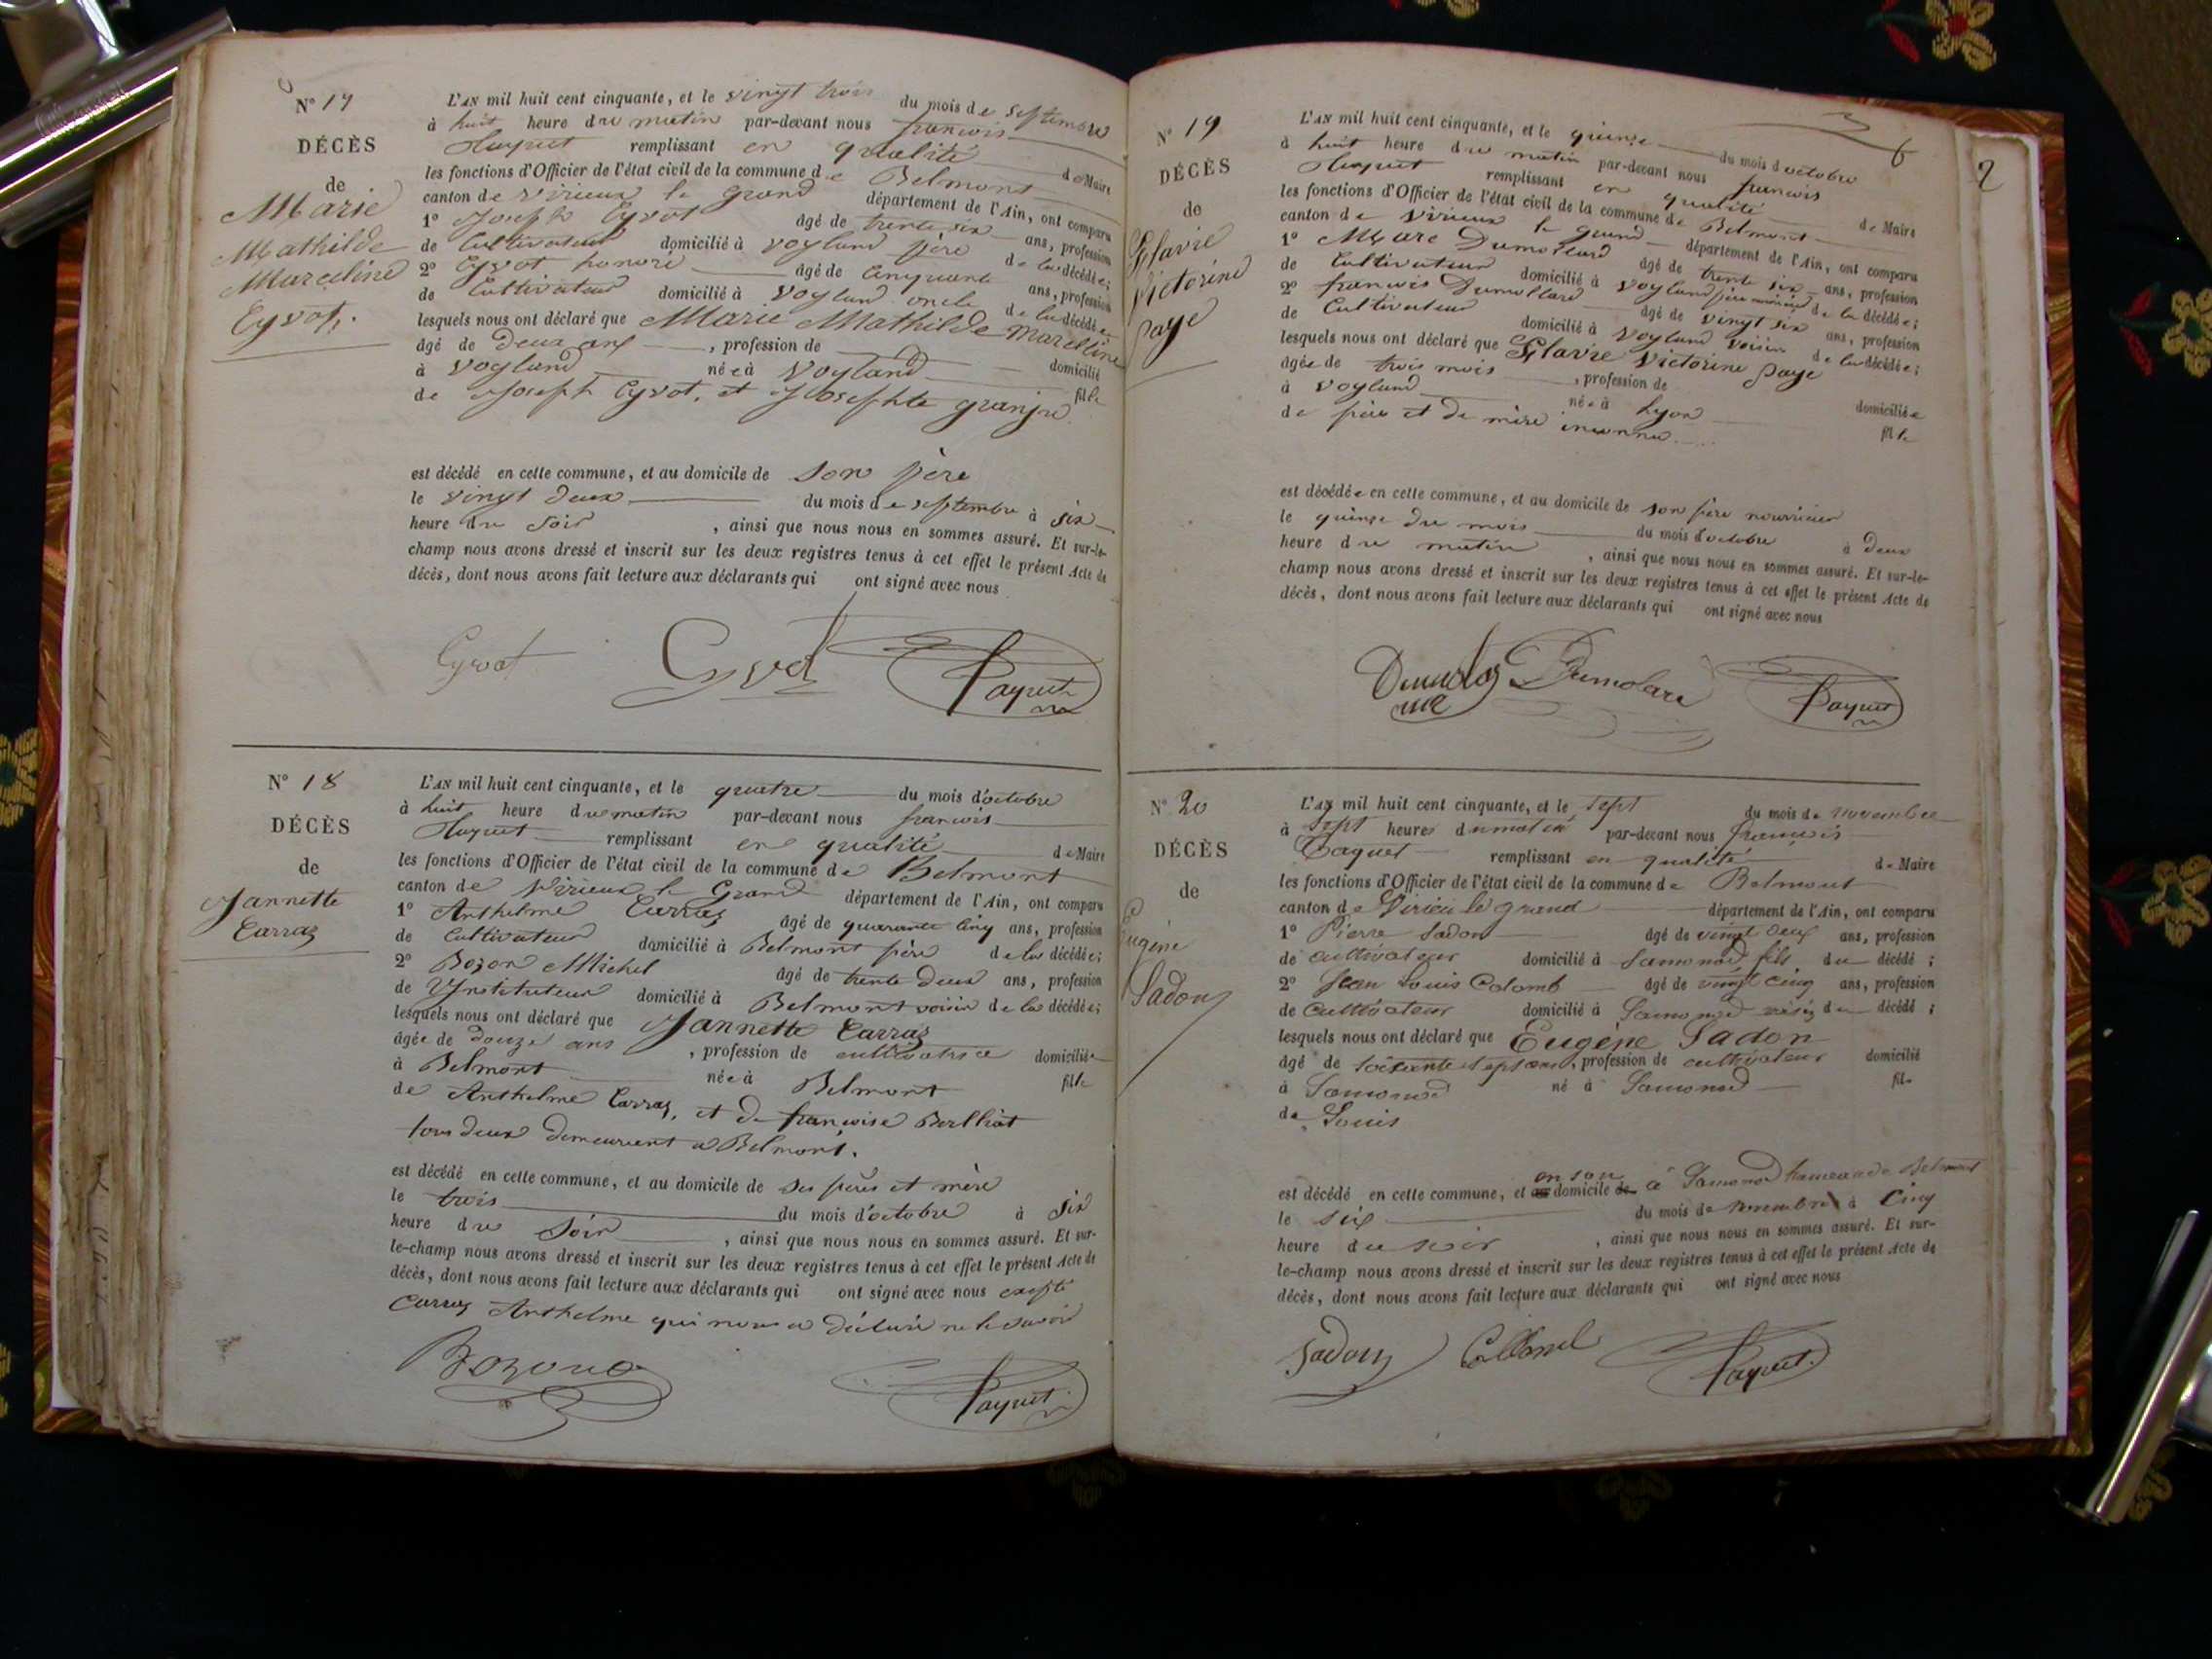 N° 17
DÉCÈS
de
Marie
Mathilde
Marceline
Cyvot.
L'AN mil huit cent cinquante, et le vingt trois du mois de septembre
à huit heure du matin par-devant nous francois
Paquet remplissant en qualité de Maire
les fonctions d'Officier de l'état civil de la commune de Belmont
canton de Virieux le grand département de l'Ain, ont comparu
1° Joseph Cyvot âgé de trente six ans, profession
de Cultivateur domicilié à Vogland père de la décédée;
2° Cyvot honoré âgé de Cinquante ans, profession
de Cultivateur domicilié à Vogland oncle de la décédée
lesquels nous ont déclaré que Marie Mathilde Marceline
âgé de deux ans, profession de domicilié
à Vogland née à Vogland fille
de Joseph Cyvot, et Josephte granjé
est décédé en cette commune, et au domicile de son père
le vingt deux du mois de septembre à six
heure du soir, ainsi que nous nous en sommes assuré. Et sur-le-
champ nous avons dressé et inscrit sur les deux registres tenus à cet effet le présent Acte de
décès, dont nous avons fait lecture aux déclarants qui ont signé avec nous
Cyvot Cyvot Paquet
N° 18
DÉCÈS
de
Jannette
Carraz
L'AN mil huit cent cinquante, et le quatre du mois d'octobre
à huit heure du matin par-devant nous francois
Paquet remplissant en qualité de Maire
les fonctions d'Officier de l'état civil de la commune de Belmont
canton de Virieux le Grand département de l'Ain, ont comparu
1° Anthelme Carraz âgé de quarante cinq ans, profession
de Cultivateur domicilié à Belmont père de la décédée;
2° Bozon Michel âgé de trente deux ans, profession
de Ynstituteur domicilié à Belmont voisin de la décédée;
lesquels nous ont déclaré que Jannette Carraz
âgée de douze ans, profession de cultivatrice domiciliée
à Belmont née à Belmont fille
de Anthelme Carraz, et de françoise Berlliat
tous deux demeurent a Belmont.
est décédé en cette commune, et au domicile de ses pères et mère
le trois du mois d'octobre à six
heure du soir, ainsi que nous nous en sommes assuré. Et sur-
le-champ nous avons dressé et inscrit sur les deux registres tenus à cet effet le présent Acte de
décès, dont nous avons fait lecture aux déclarants qui ont signé avec nous excepté
Carraz Anthelme qui nous a déclaré ne le savoir
Bozon Paquet
6
2
N° 19
DÉCÈS
de
Flavie
Victorine
paye
L'AN mil huit cent cinquante, et le quinze du mois d'octobre
à huit heure du matin par-devant nous francois
Paquet remplissant en qualité de Maire
les fonctions d'Officier de l'état civil de la commune de Belmont
canton de Virieux le grand département de l'Ain, ont comparu
1° Marc Dumollard âgé de trente six ans, profession
de Cultivateur domicilié à Vogland père nouricier de la décédée;
2° francois Dumollard âgé de vingt six ans, profession
de Cultivateur domicilié à Vogland voisin de la décédée;
lesquels nous ont déclaré que Flavie Victorine paye
âgée de trois mois, profession de domiciliée
à Vogland née à Lyon fille
de père et de mère inconnu
est décédée en cette commune, et au domicile de son père nourricier
le quinze du mois du mois d'octobre à deux
heure du matin, ainsi que nous nous en sommes assuré. Et sur-le-
champ nous avons dressé et inscrit sur les deux registres tenus à cet effet le présent Acte de
décès, dont nous avons fait lecture aux déclarants qui ont signé avec nous
Dumolare Paquet
N° 20
DÉCÈS
de
Eugène
Sadon
L'AN mil huit cent cinquante, et le sept du mois de novembre
à sept heures du matin par-devant nous françois
Paquet remplissant en qualité de Maire
les fonctions d'Officier de l'état civil de la commune de Belmont
canton de Virieu le grand département de l'Ain, ont comparu
1° Pierre Sadon âgé de vingt deux ans, profession
de cultivateur domicilié à Samonod fils du décédé;
2° Jean Louis Colomb âgé de vingt cinq ans, profession
de cultivateur domicilié à Samonod voisin du décédé;
lesquels nous ont déclaré que Eugène Sadon
âgé de soixante sept ans, profession de cultivateur domicilié
à Samonod né à Samonod fils
de Louis
est décédé en cette commune, et en son domicile à Samonod hameau de Belmont
le six du mois de novembre à cinq
heure du soir, ainsi que nous nous en sommes assuré. Et sur-
le-champ nous avons dressé et inscrit sur les deux registres tenus à cet effet le présent Acte de
décès, dont nous avons fait lecture aux déclarants qui ont signé avec nous
Sadon Paquet